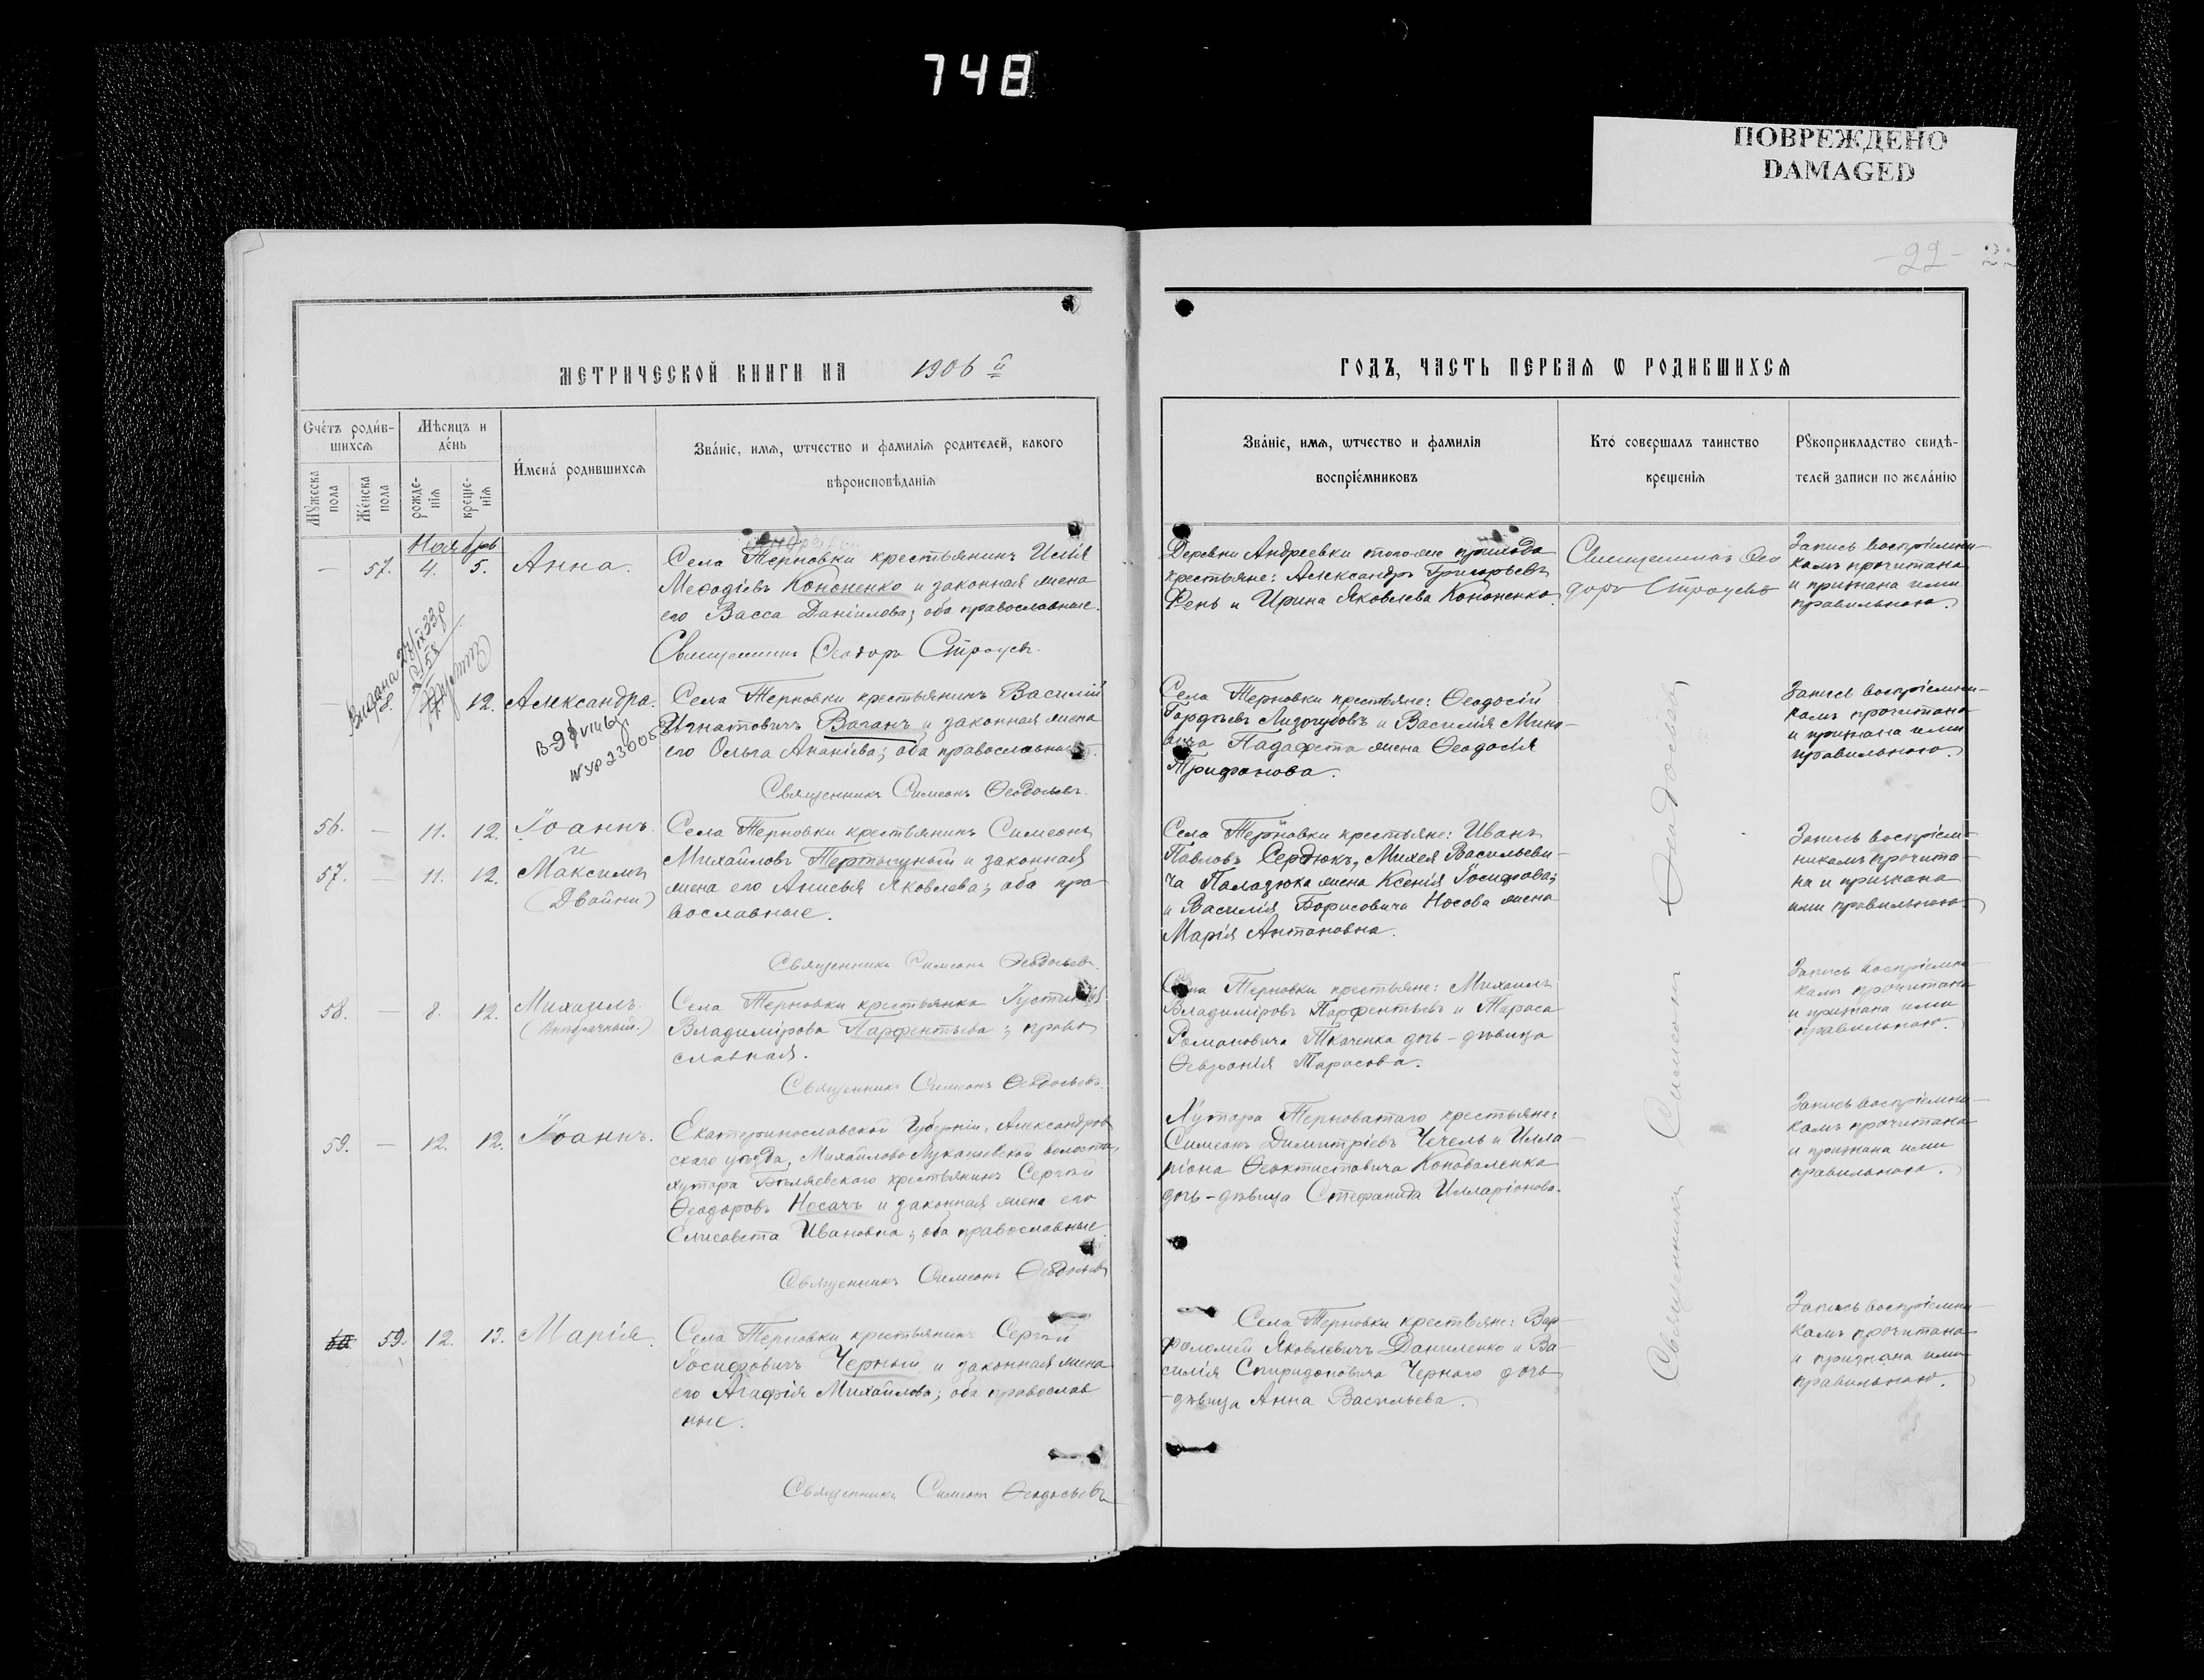 748
ПОВРЕЖДЕНО
DAMAGED
-22-
МЕТРИЧЕСКОЙ КНИГИ НА 1906 й
ГОДЪ, ЧАСТЬ ПЕРВАЯ Ѡ РОДИВШИХСЯ
Счетъ родив-
шихся
Мужеска пола
Женска пола
Мѣсяцъ и
день
рожде-
нія
креще-
нія
Имена родившихся
Званіе, имя, ѡтчество и фамилія родителей, какого
вѣроисповѣданія
Званіе, имя, ѡтчество и фамилія
воспріемниковъ
Кто совершалъ таинство
крещенія
Рукоприкладство свидѣ-
телей записи по желанію
Ноябрь
— 57. 4. 5. Анна.
Села Терновки крестьянинъ Илія
Меѳодіевъ Кононенко и законная жена
его Васса Даніилова; оба православные.
Священникъ Ѳеодоръ
Деревни Андреевки того-же прихода
крестьяне: Александръ Григорьевъ
Фень и Ирина Яковлева Кононенко.
Священникъ Ѳео
доръ
Запись воспріемни-
камъ прочитана
и признана ими
правильною.
Видана
12. Александра.
Села Терновки крестьянинъ Василій
Игнатовичъ Ваганъ и законная жена
его Ольга Ананіева; оба православные.
Священникъ Симеонъ Ѳеодосьевъ.
Села Терновки крестьяне: Ѳеодосій
Гордѣевъ Лизогубовъ и Василія Мина-
жена Ѳеодосія
Трифонова.
Запись воспріемни-
камъ прочитана
и признана ими
правильною.
56. — 11. 12. Іоаннъ
и
57. — 11. 12. Максимъ
(Двойни)
Села Терновки крестьянинъ Симеонъ
Михайловъ Тертышный и законная
жена его Анисья Яковлева; оба пра-
вославные.
Священникъ Симеонъ Ѳеодосьевъ.
Села Терновки крестьяне: Иванъ
Павловъ Сердюкъ, Михея Васильеви-
ча жена Ксенія Іосифова;
и Василія Борисовича Носова жена
Марія Антоновна.
Запись воспріем-
никамъ прочита-
на и признана
ими правильною.
58. — 8. 12. Михаилъ.
(Внебрачный.)
Села Терновки крестьянка Іустинія
Владимірова Парфентьева; право
славная.
Священникъ Симеонъ Ѳеодосьевъ.
Села Терновки крестьяне: Михаилъ
Владиміровъ Парфентьевъ и Тараса
Романовича Ткаченка дочь-дѣвица
Ѳевронія Тарасова.
Запись воспріемни-
камъ прочитана
и признана ими
правильною.
59. — 12. 12. Іоаннъ.
Екатеринославской Губерніи, Александров
скаго уѣзда, Михайлово-Лукашевской волости,
хутора Бѣляевскаго крестьянинъ Сергѣй
Ѳеодоровъ Носачъ и законная жена его
Елисавета Ивановна; оба православные.
Священникъ Симеонъ Ѳеодосьевъ
Хутора Терноватаго крестьяне:
Симеонъ Димитріевъ Чечель и Илла-
ріона Ѳеоктистовича Коноваленка
дочь-дѣвица Стефанида Илларіонова.
Запись воспріемни-
камъ прочитана
и признана ими
правильною.
60. 59. 12. 13. Марія.
Села Терновки крестьянинъ Сергѣй
Іосифовичъ Черный и законная жена
его Агафія Михайлова; оба православ
ные.
Священникъ Симеонъ Ѳеодосьевъ
Села Терновки крестьяне: Вар-
фоломей Яковлевичъ Даниленко и Ва-
силія Спиридоновича Чернаго дочь
-дѣвица Анна Васильева.
Запись воспріемни-
камъ прочитана
и признана ими
правильною.
Священникъ Симеонъ Ѳеодосьевъ